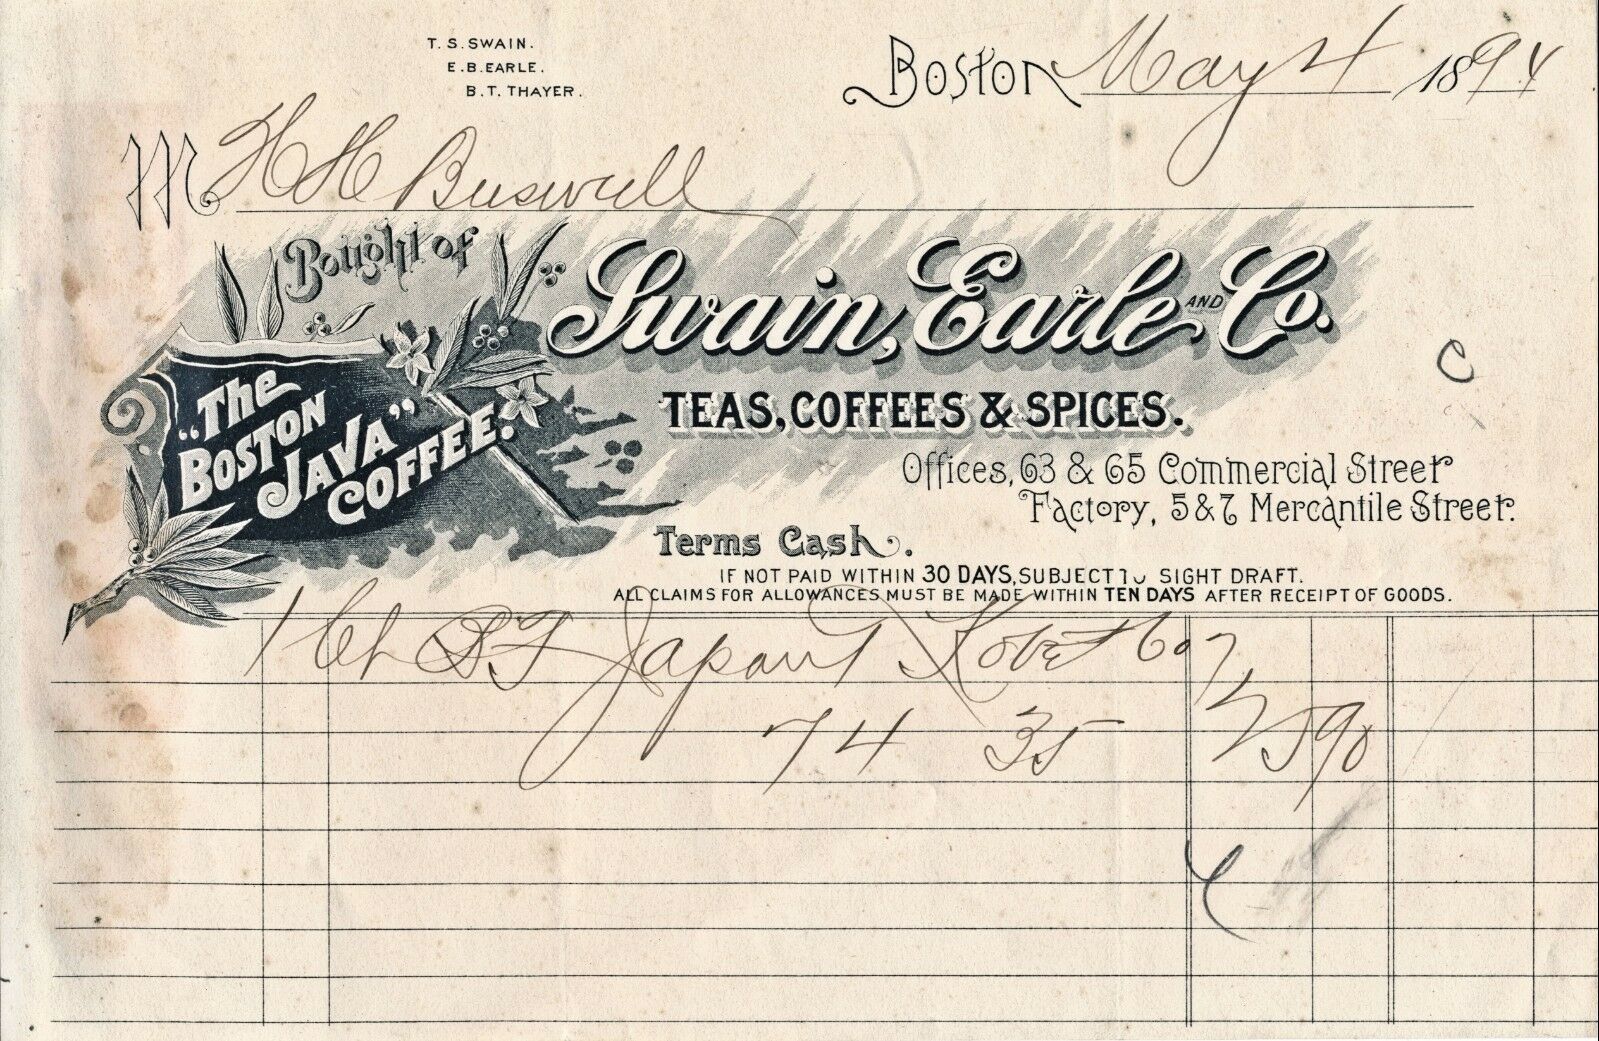 T. S. SWAIN.
E. B. EARLE.
B. T. THAYER.
Boston May 4 1894
M H H Buswell
Bought of
Swain, Earle AND Co.
"The
BOSTON
JAVA"
COFFEE.
TEAS, COFFEES & SPICES.
Offices, 63 & 65 Commercial Street
Factory, 5 & 7 Mercantile Street.
Terms Cash.
IF NOT PAID WITHIN 30 DAYS, SUBJECT TO SIGHT DRAFT.
ALL CLAIMS FOR ALLOWANCES MUST BE MADE WITHIN TEN DAYS AFTER RECEIPT OF GOODS.
1 Japan
74 35 2590